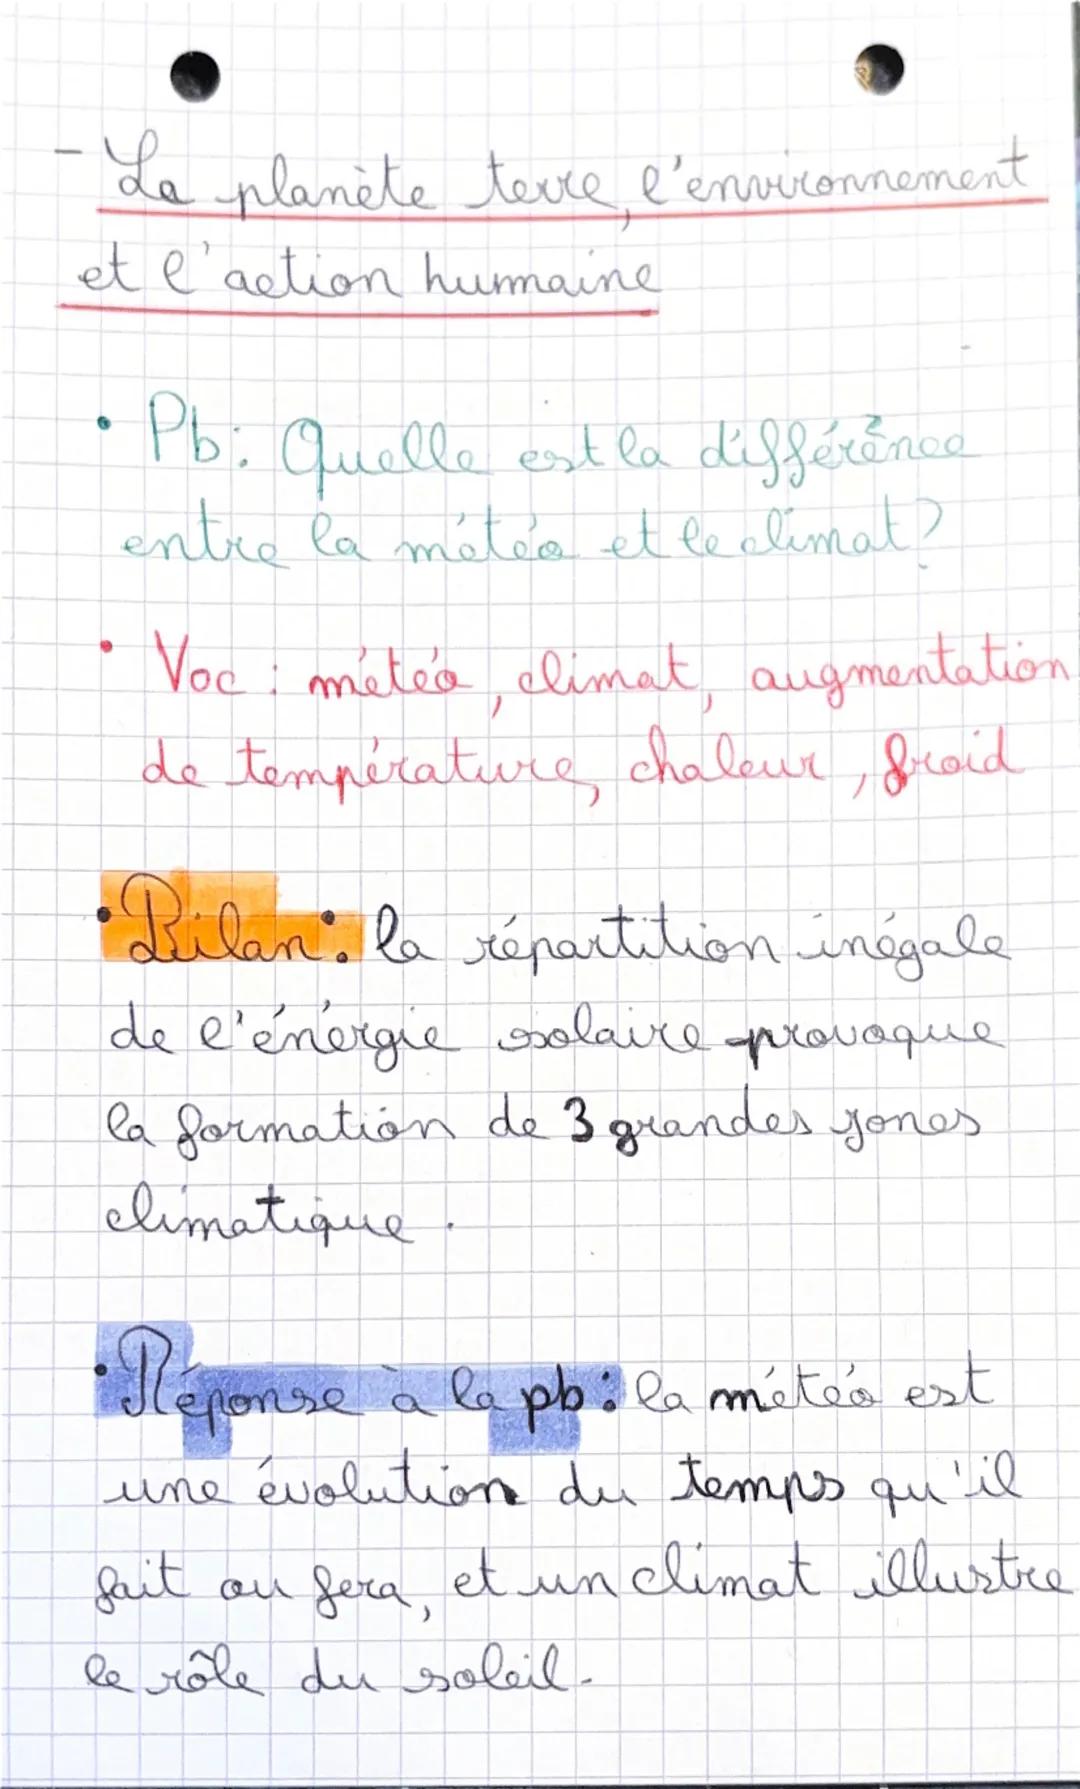 - La planète terre, l'environnement
et l'action humaine
• Pb: Quelle est la différence
entre la météo et le climat?
• Voc : météo, climat, augmentation
de température, chaleur, froid
• Bilan : la répartition inégale
de l'énergie solaire provoque
la formation de 3 grandes zones
climatique.
• Réponse à la pb : la météo est
une évolution du temps qu'il
fait ou fera, et un climat illustre
le rôle du soleil.